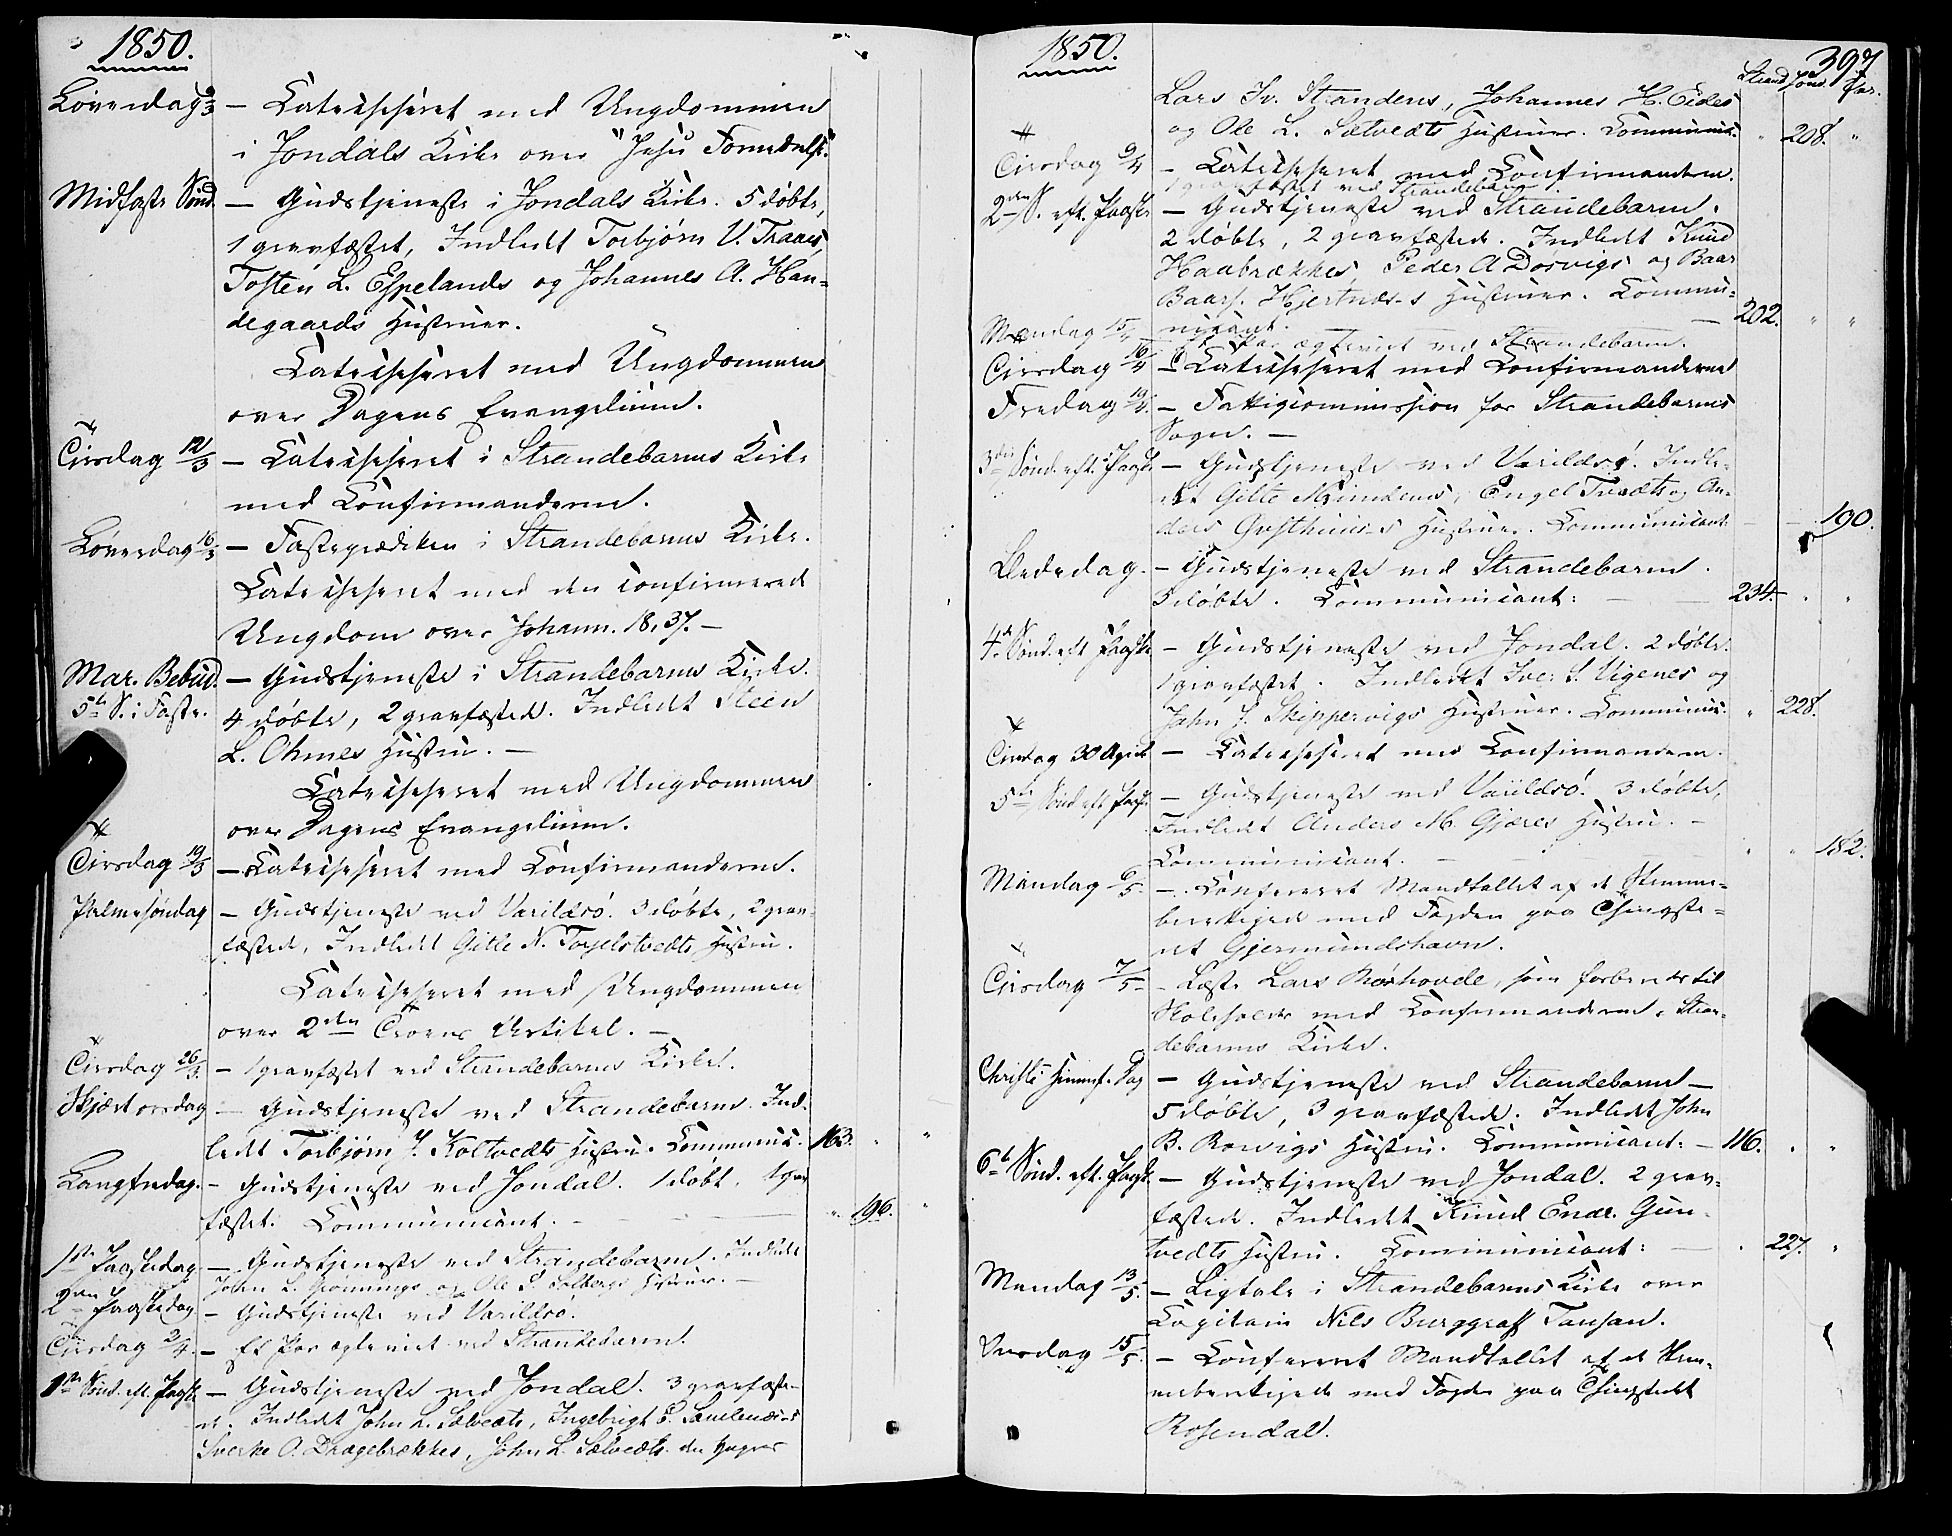 1850.
Løverdag 9/3 - Catechiseret med Ungdommen
i Jondals Kirke over "Jesu Fornedrelse."
Midfaste Sønd. - Gudstjeneste i Jondals Kirke. 5 døbte,
1 gravfæstet, Indledt Torbjørn V. Traaes,
Tosten L. Espelands og Johannes A. Han-
degaards Hustruer.
Catechiseret med Ungdommen
over Dagens Evangelium.
Tirsdag 12/3 - Catechiseret i Strandebarms Kirke
med Confirmanderne.
Løverdag 16/3 - Fasteprædiken i Strandebarms Kirke.
Catechiseret med den confirmerede
Ungdom over Johann. 18, 37. -
Mar. Bebud. - Gudstjeneste i Strandebarms Kirke.
5te S. i Faste. 4 døbte, 2 gravfæstede. Indledt Steen
L. Ohmes Hustru. -
Catechiseret med Ungdommen
over Dagens Evangelium.
Tirsdag 19/3 - Catechiseret med Confirmanderne.
Palmesøndag - Gudstjeneste ved Varildsø. 3 døbte, 2 grav-
fæstede, Indledt Gitle N. Hustru.
Catechiseret med Ungdommen
over 2den Troens Artikel. -
Tirsdag 26/3 - 1 gravfæstet ved Strandebarms Kirke.
Skjærtorsdag - Gudstjeneste ved Strandebarm. Ind-
ledt Torbjørn J. Koltvedts Hustru. Communic. 163. " "
Langfredag. - Gudstjeneste ved Jondal. 1 døbt, 1 grav-
fæstet. Communicant. - " 196. "
1ste Paaskedag - Gudstjeneste ved Strandebarm. Indledt
John L. og Ole Hustruer. -
2den Paaskedag - Gudstjeneste ved Varildsø.
Tirsdag 2/4 - Et Par ægteviet ved Strandebarm.
1ste Sønd. eft. Paaske - Gudstjeneste ved Jondal. 3 gravfæste-
de. Indledt John L. Sætvedts, Ingebrigt
Sverke O. Drægebrækkes, John L. Sætvedts
1850. 397
Strand. Jond. Var.
Lars Iv. Strandens, Johannes H. Eides
og Ole L. Sætvedts Hustruer. Communic. " 208. "
Tirsdag 9/4 - Catechiseret med Confirmanderne.
1 gravfæstet ved Strandebarm.
2den S. eft. Paaske - Gudstjeneste ved Strandebarm.
2 døbte, 2 gravfæstede. Indledt Knud
Haabrækkes, Peder A. Dorvigs og Baar
Baars. Hjertnæs's Hustruer. Commu-
nicant. - 202. " "
Mandag 15/4 Et Par ægteviet ved Strandebarm.
Tirsdag 16/4 - Catechiseret med Confirmanderne
Fredag 19/4 - Fattigcommission for Strandebarms
Sogn. -
3die Sønd. eft. Paaske - Gudstjeneste ved Varildsø. Indle-
dt Gitle Mundems, Engel Tvedts og An-
ders Hustruer. Communicant - - 190.
Bededag. - Gudstjeneste ved Strandebarm.
3 døbte. Communicant: - 234. " "
4de Sønd. eft. Paaske - Gudstjeneste ved Jondal. 2 døbte.
1 gravfæstet. Indledt Iver S. Vigenes og
John J. Skippervigs Hustruer. Communic. " 228.
Tirsdag 30 April - Catechiseret med Confirmanderne.
5te Sønd. eft. Paaske - Gudstjeneste ved Varildsø. 3 døbte,
Indledt Anders M. Gjæres Hustru. -
Communicant. - " " 182.
Mandag 6/5. - Confereret Mandtallet af de Stemme-
berettigede med Fogden paa Thingste-
det Gjermundshavn.
Tirsdag 7/5 - Læste Lars Børhovde, som forberedes til
Skoleholder med Confirmanderne i Stran-
debarms Kirke.
Christi Himmelf. Dag - Gudstjeneste ved Strandebarm -
5 døbte, 3 gravfæstede. Indledt John
B. Hustru. Communicant: - 116. " "
6te Sønd. eft. Paaske - Gudstjeneste ved Jondal. 2 grav-
fæstede. Indledt Knud Endr. Gun-
tvedts Hustru. Communicant: - " 227. "
Mandag 13/5. - Ligtale i Strandebarms Kirke over
Capitain Nils Burggraff Tausan.
Onsdag 15/5. - Confereret Mandtallet af de Stem-
meberettigede med Fogden paa Thingstedet
Rosendal.